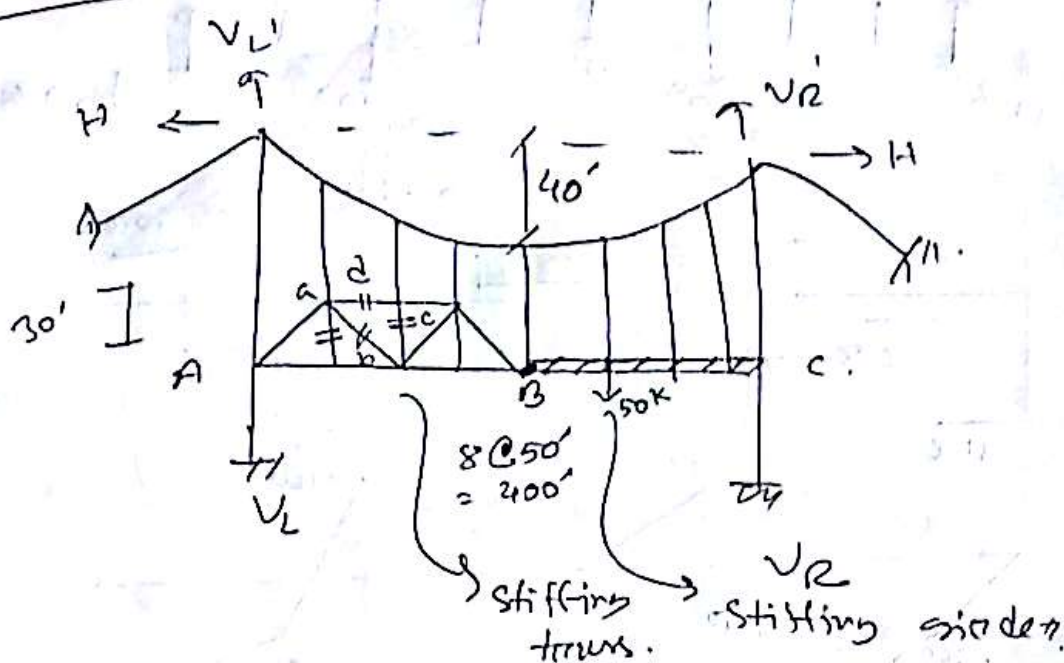 VL'
H
VR'
H
40'
a
d
c
b
30'
A
B
C.
50K
8@50'
= 400'
VL
VR
stiffing
truss.
stiffing girder.